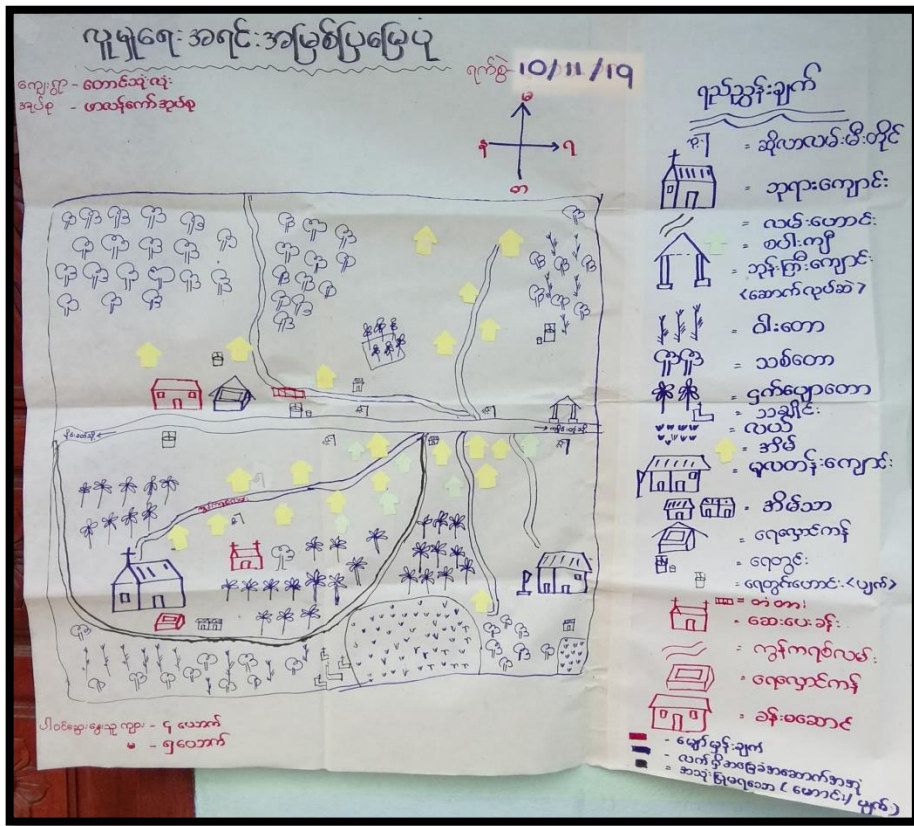 လူမှုရေးအရင်းအမြစ်ပြမြေပုံ
ရက်စွဲ - 10/11/19
ကျေးရွာ - တောင်သုံးလုံး
အုပ်စု - ဖာလန်ကော်အုပ်စု
မ
န
ရ
တ
ရည်ညွှန်းချက်
= ဆိုလာလမ်းမီးတိုင်
= ဘုရားကျောင်း
= လမ်းဟောင်း
= စပါးကျီ
= ဘုန်းကြီးကျောင်း
(ဆောက်လုပ်ဆဲ)
= ဝါးတော
= သစ်တော
= ငှက်ပျောတော
= သင်္ချိုင်း
= လယ်
= အိမ်
= မူလတန်းကျောင်း
= အိမ်သာ
= ရေလှောင်ကန်
= ရေတွင်း
= ရေတွင်းဟောင်း (ပျက်)
= တံတား
= ဆေးပေးခန်း
= ကွန်ကရစ်လမ်း
= ရေလှောင်ကန်
= ခန်းမဆောင်
- မျှော်မှန်းချက်
- လက်ရှိအခြေခံအဆောက်အအုံ
= အသုံးပြုမရသော (ဟောင်း/ပျက်)
ပါဝင်ဆွေးနွေးသူ ကျား - ၄ ယောက်
မ - ၅ ယောက်